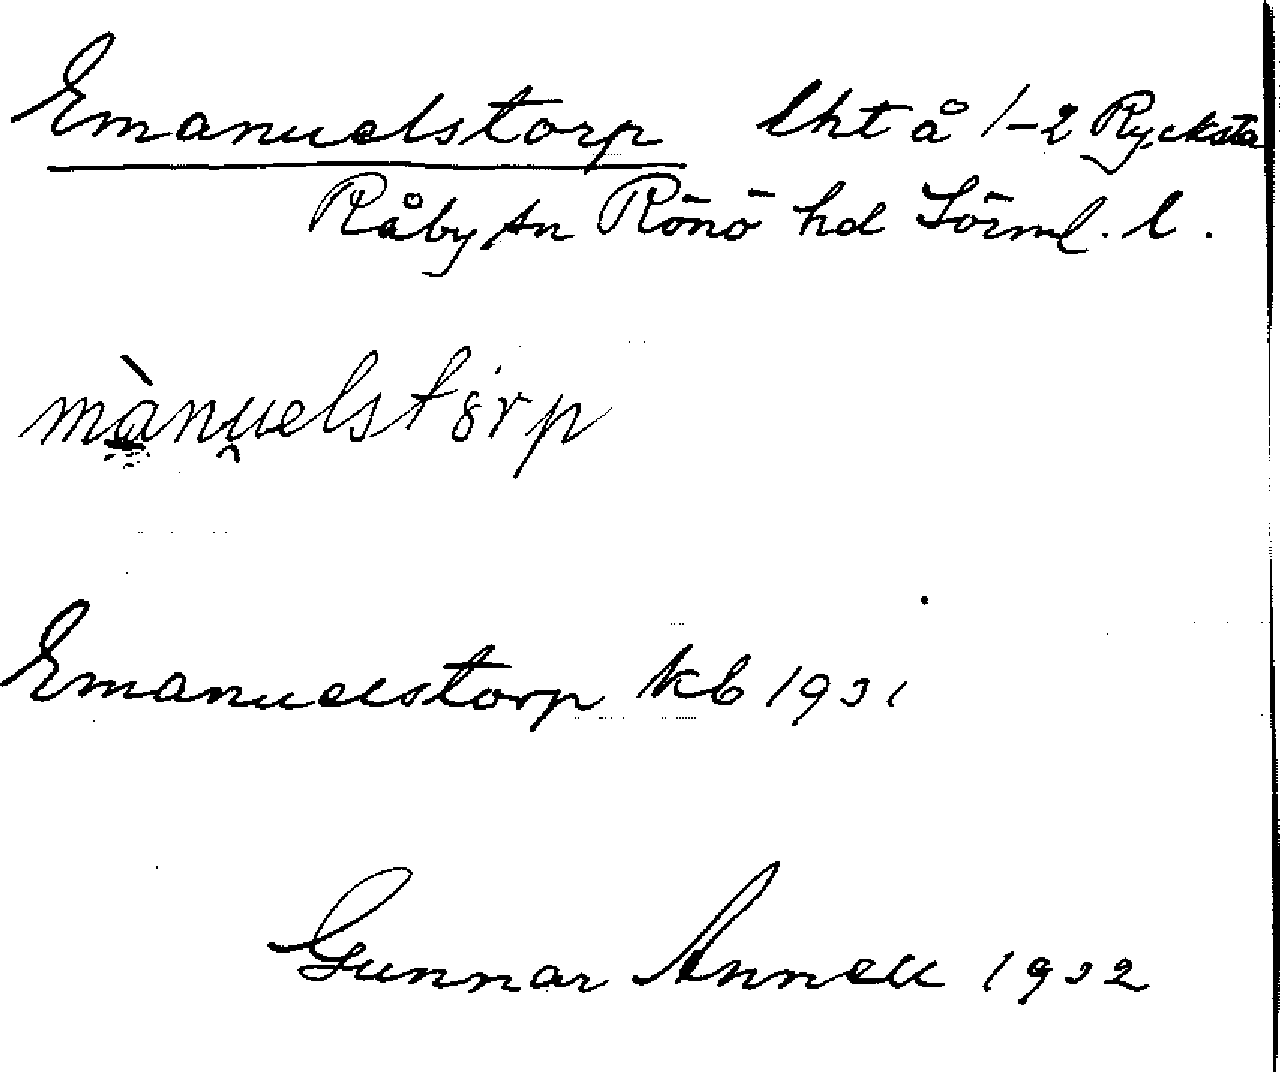 Emanuelstorp lht å 1-2 Rycksta
Råby sn Rönö hd Sörml. l.
mànuelstørp
Emanuelstorp kb 1931
Gunnar Annell 1932